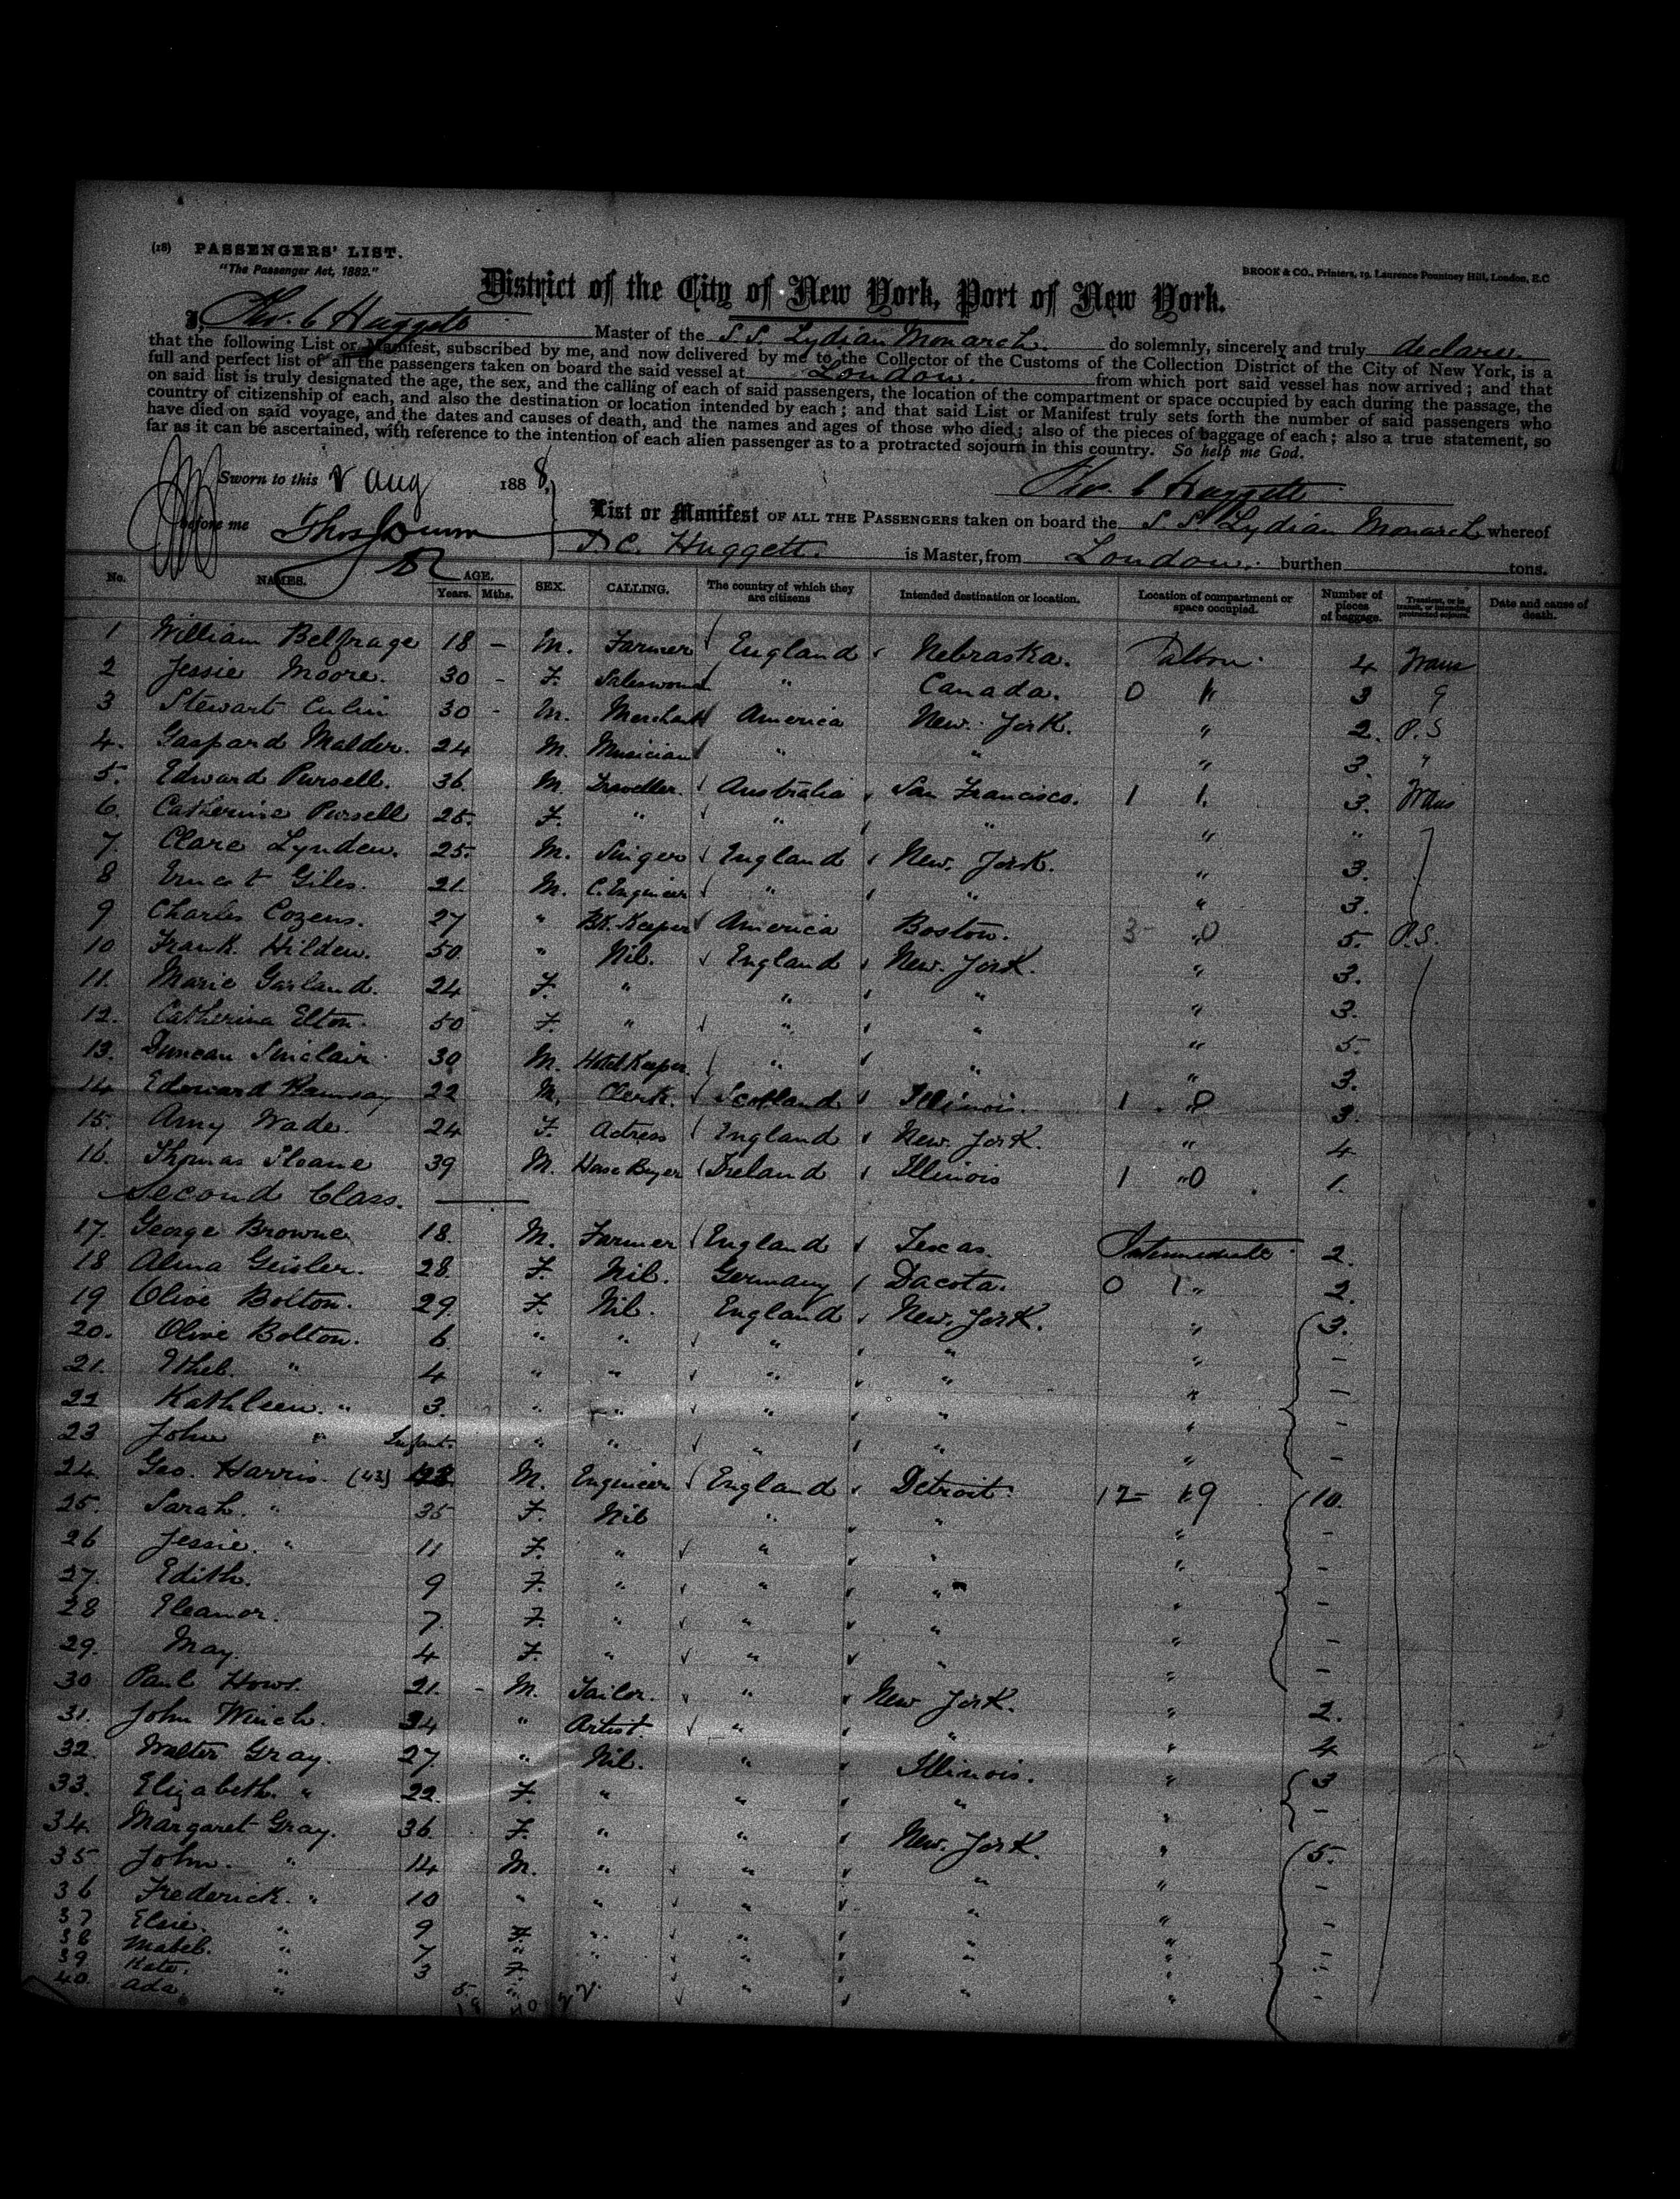 (18) PASSENGERS' LIST.
"The Passenger Act, 1882."
BROOK & CO., Printers, 19, Laurence Pountney Hill, London, E.C
District of the City of New York, Port of New York.
I, Thos. C Huggett Master of the S. S. Lydian Monarch do solemnly, sincerely and truly declare
that the following List or Manifest, subscribed by me, and now delivered by me to the Collector of the Customs of the Collection District of the City of New York, is a
full and perfect list of all the passengers taken on board the said vessel at London. from which port said vessel has now arrived; and that
on said list is truly designated the age, the sex, and the calling of each of said passengers, the location of the compartment or space occupied by each during the passage, the
country of citizenship of each, and also the destination or location intended by each; and that said List or Manifest truly sets forth the number of said passengers who
have died on said voyage, and the dates and causes of death, and the names and ages of those who died; also of the pieces of baggage of each; also a true statement, so
far as it can be ascertained, with reference to the intention of each alien passenger as to a protracted sojourn in this country. So help me God.
Sworn to this 8 Aug 1888
Thos. C Huggett
before me
List or Manifest OF ALL THE PASSENGERS taken on board the S. S. Lydian Monarch whereof
T. C. Huggett. is Master, from London. burthen tons.
No. NAMES. AGE. Years. Mths. SEX. CALLING. The country of which they are citizens Intended destination or location. Location of compartment or space occupied. Number of pieces of baggage. Transient, or in transit, or intending protracted sojourn. Date and cause of death.
1 William Belfrage 18 - M. Farmer England Nebraska. Saloon. 4 Trans
2 Jessie Moore. 30 - F. Saleswoman " Canada. 0 " 3
3 Stewart Culin 30 - M. Merchant America New York. " 2. P.S
4. Gaspard Malder. 24 M. Musician " " " 3. "
5. Edward Pursell. 36. M. Traveller. Australia San Francisco. 1 1. 3. Trans
6. Catherine Pursell 25. F. " " " " "
7. Clare Lynden. 25. M. Singer England New York. " 3.
8 Ernest Giles. 21. M. C. Engineer " " " 3.
9 Charles Cozens. 27 " Bk. Keeper America Boston. 3 0 5. P.S.
10 Frank Hilden. 50. " Nil. England New York. " 3.
11. Marie Garland. 24 F. " " " " 3.
12. Catherina Elton. 50 F. " " " " 5.
13. Duncan Sinclair 30 M. Hotel Keeper. " " " 3.
14 Edward Ramsay 22 M. Clerk. Scotland Illinois. 1 0 3.
15. Amy Wade. 24 F. Actress England New York. " 4
16. Thomas Sloane 39 M. Horse Buyer Ireland Illinois 1 0 1.
Second Class.
17. George Browne 18. M. Farmer England Texas. Intermediate 2.
18 Alma Geisler. 28. F. Nil. Germany Dacota. 0 1 " 2.
19 Olive Bolton. 29. F. Nil. England New York. " 3.
20. Olive Bolton. 6. " " " " " -
21. Ethel. " 4 " " " " " -
22 Kathleen. " 3. " " " " " -
23 John " Infant. " " " " " -
24. Geo. Harris. (43) M. Engineer England Detroit. 12 19 10.
25. Sarah. " 35 F. Nil " " " -
26 Jessie. " 11 F. " " " " -
27. Edith. 9 F. " " " " -
28 Eleanor. 7. F. " " " " -
29. May. 4 F. " " " " -
30 Paul Hows. 21. - M. Tailor. " New York. " 2.
31. John Winch. 24 " Artist. " " " 4
32. Walter Gray. 27. " Nil. " Illinois. " 3
33. Elizabeth. " 22. F. " " " " -
34. Margaret Gray. 36. F. " " New York. " 5.
35 John. " 14 M. " " " " -
36 Frederick. " 10 " " " " " -
37 Elsie. " 9 F. " " " " -
38 Mabel. " 7 " " " " " -
39 Kate. " 3 F. " " " " -
40. Ada. " 5. " " " " -